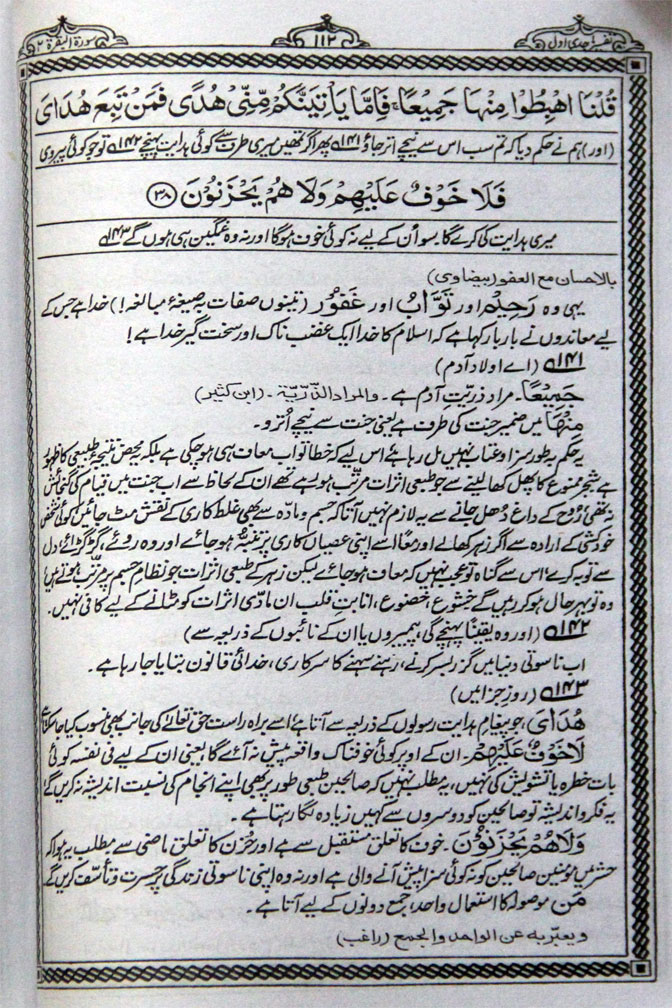 تفسیر ماجدی اول
۱۱۲
سورۃ البقرۃ ۲
قُلْنَا اهْبِطُوْا مِنْهَا جَمِيْعًا ۚ فَاِمَّا يَاْتِيَنَّكُمْ مِّنِّيْ هُدًى فَمَنْ تَبِعَ هُدَايَ
(اور) ہم نے حکم دیا کہ تم سب اس سے نیچے اتر جاؤ ۱۴۱ پھر اگر تمھیں میری طرف سے کوئی ہدایت پہنچے ۱۴۲ تو جو کوئی پیروی
فَلَا خَوْفٌ عَلَيْهِمْ وَلَا هُمْ يَحْزَنُوْنَ ﴿۳۸﴾
میری ہدایت کی کرے گا۔ سو اُن کے لیے نہ کوئی خوف ہوگا اور نہ وہ غمگین ہی ہوں گے ۱۴۳
بالاحسان مع العفو (بیضاوی)
یہی وہ رَحِیْم اور تَوَّاب اور غَفُوْر (تینوں صفات بہ صیغۂ مبالغہ!) خدا ہے جس کے
لیے معاندوں نے بار بار کہا ہے کہ اسلام کا خدا ایک غضب ناک اور سخت گیر خدا ہے!
۱۴۱ (اے اولاد آدم)
جَمِيْعًا۔ مراد ذریتِ آدم ہے۔ والمراد الذّرّیّۃ۔ (ابن کثیر)
مِنْهَا میں ضمیر جنت کی طرف ہے یعنی جنت سے نیچے اُترو۔
یہ حکم بہ طور سزا و عتاب نہیں مل رہا ہے اس لیے کہ خطا تو اب معاف ہی ہوچکی ہے بلکہ یہ محض نتیجۂ طبیعی کا ظہور
ہے شجرِ ممنوع کا پھل کھا لینے سے جو طبعی اثرات مرتّب ہو رہے تھے ان کے لحاظ سے اب جنت میں قیام کی گنجائش
نہ تھی، رُوح کے داغ دُھل جانے سے یہ لازم نہیں آتا کہ جسم و مادّہ سے بھی غلط کاری کے نقش مٹ جائیں کوئی شخص
خودکشی کے ارادہ سے اگر زہر کھالے اور معًا اسے اپنی عصیاں کاری پر تنبّہ ہوجائے اور وہ روئے، گڑگڑائے، دل
سے توبہ کرے، اس سے گناہ تو عجب نہیں کہ معاف ہوجائے لیکن زہر کے طبعی اثرات جو نظامِ جسم پر مرتّب ہوتے ہیں
وہ تو بہرحال ہوکر رہیں گے، خشوع، خضوع، انابتِ قلب ان مادّی اثرات کو مٹانے کے لیے کافی نہیں۔
۱۴۲ (اور وہ یقینًا پہنچے گی، پیمبروں یا ان کے نائبوں کے ذریعہ سے)
اب ناسوتی دنیا میں گزر بسر کرنے، رہنے سہنے کا سرکاری، خدائی قانون بتایا جارہا ہے۔
۱۴۳ (روزِ جزا میں)
هُدَايَ، جو پیغامِ ہدایت رسولوں کے ذریعہ سے آتا ہے، اسے براہ راست حق تعالےٰ کی جانب بھی منسوب کیا جاسکتا ہے
لَا خَوْفٌ عَلَيْهِمْ۔ ان کے اوپر کوئی خوفناک واقعہ پیش نہ آئے گا یعنی ان کے لیے فی نفسہ کوئی
بات خطرہ یا تشویش کی نہیں، یہ مطلب نہیں کہ صالحین طبعی طور پر بھی اپنے انجام کی نسبت اندیشہ نہ کریں گے
یہ فکر و اندیشہ تو صالحین کو دوسروں سے کہیں زیادہ لگا رہتا ہے۔
وَلَا هُمْ يَحْزَنُوْنَ۔ خوف کا تعلق مستقبل سے ہے اور حُزن کا تعلق ماضی سے مطلب یہ ہوا کہ
حشر میں مومنین صالحین کو نہ کوئی سزا پیش آنے والی ہے اور نہ وہ اپنی ناسوتی زندگی پر حسرت و تأسّف کریں گے
مَنْ موصولہ کا استعمال واحد، جمع دونوں کے لیے آتا ہے۔
ویعبّر بہ عن الواحد والجمیع (راغب)